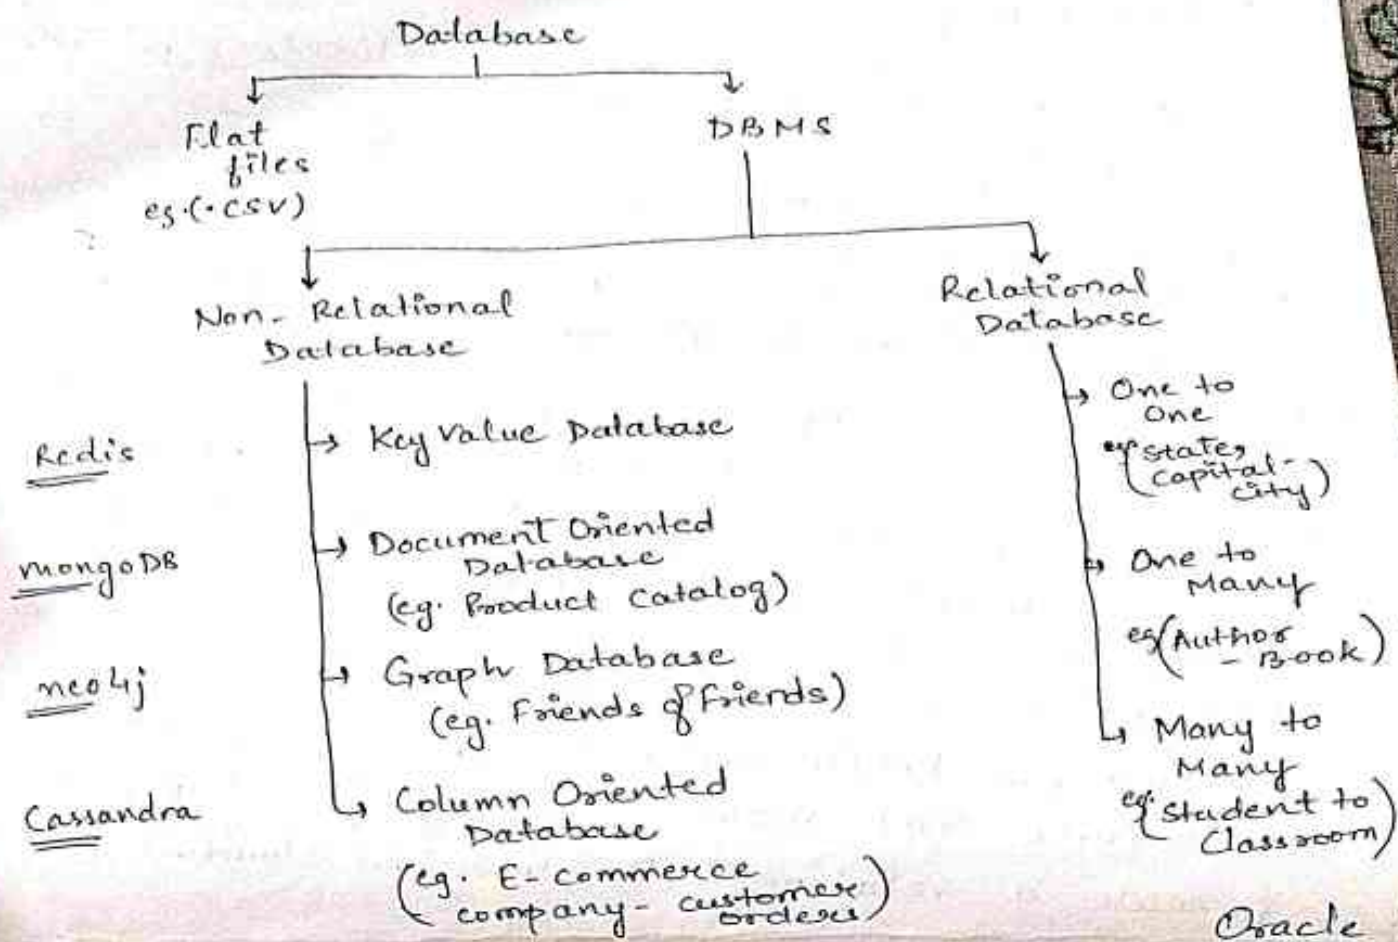 Database
Flat
files
eg.(.CSV)
DBMS
Non-Relational
Database
Relational
Database
Redis
Key Value Database
mongoDB
Document Oriented
Database
(eg. Product Catalog)
neo4j
Graph Database
(eg. Friends of Friends)
Cassandra
Column Oriented
Database
(eg. E-commerce
company - customer
orders)
One to
One
eg(State,
Capital-
city)
One to
Many
eg(Author
- Book)
Many to
Many
eg.(Student to
Classroom)
Oracle